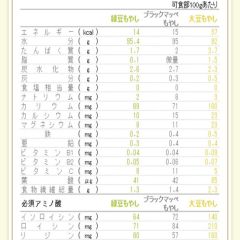 可食部100gあたり
緑豆もやし ブラックマッペもやし 大豆もやし
エネルギー (kcal) 14 15 37
水分 (g) 95.4 95 92
たんぱく質 (g) 1.7 2
脂質 (g) 0.1 微量 1.5
炭水化物 (g) 2.6 2.7 2.3
灰分 (g) 0.2 0.3 0.5
食塩相当量 (g) 0 0 0
ナトリウム (mg) 2
カリウム (mg) 69 71 160
カルシウム (mg) 10 15 23
マグネシウム (mg)
リン (mg)
鉄 (mg) 0.2 0.4
亜鉛 (mg) 0.2 0.3 0.4
ビタミンB1 (mg) 0.04 0.04 0.09
ビタミンB2 (mg) 0.05 0.06 0.07
ビタミンC (mg) 8 11 5
葉酸 (μg) 41 42 85
食物繊維総量 (g) 1.3 1.4 2.3
必須アミノ酸 緑豆もやし ブラックマッペもやし 大豆もやし
イソロイシン (mg) 64 72 140
ロイシン (mg) 71 210
リジン (mg) 60 57 160